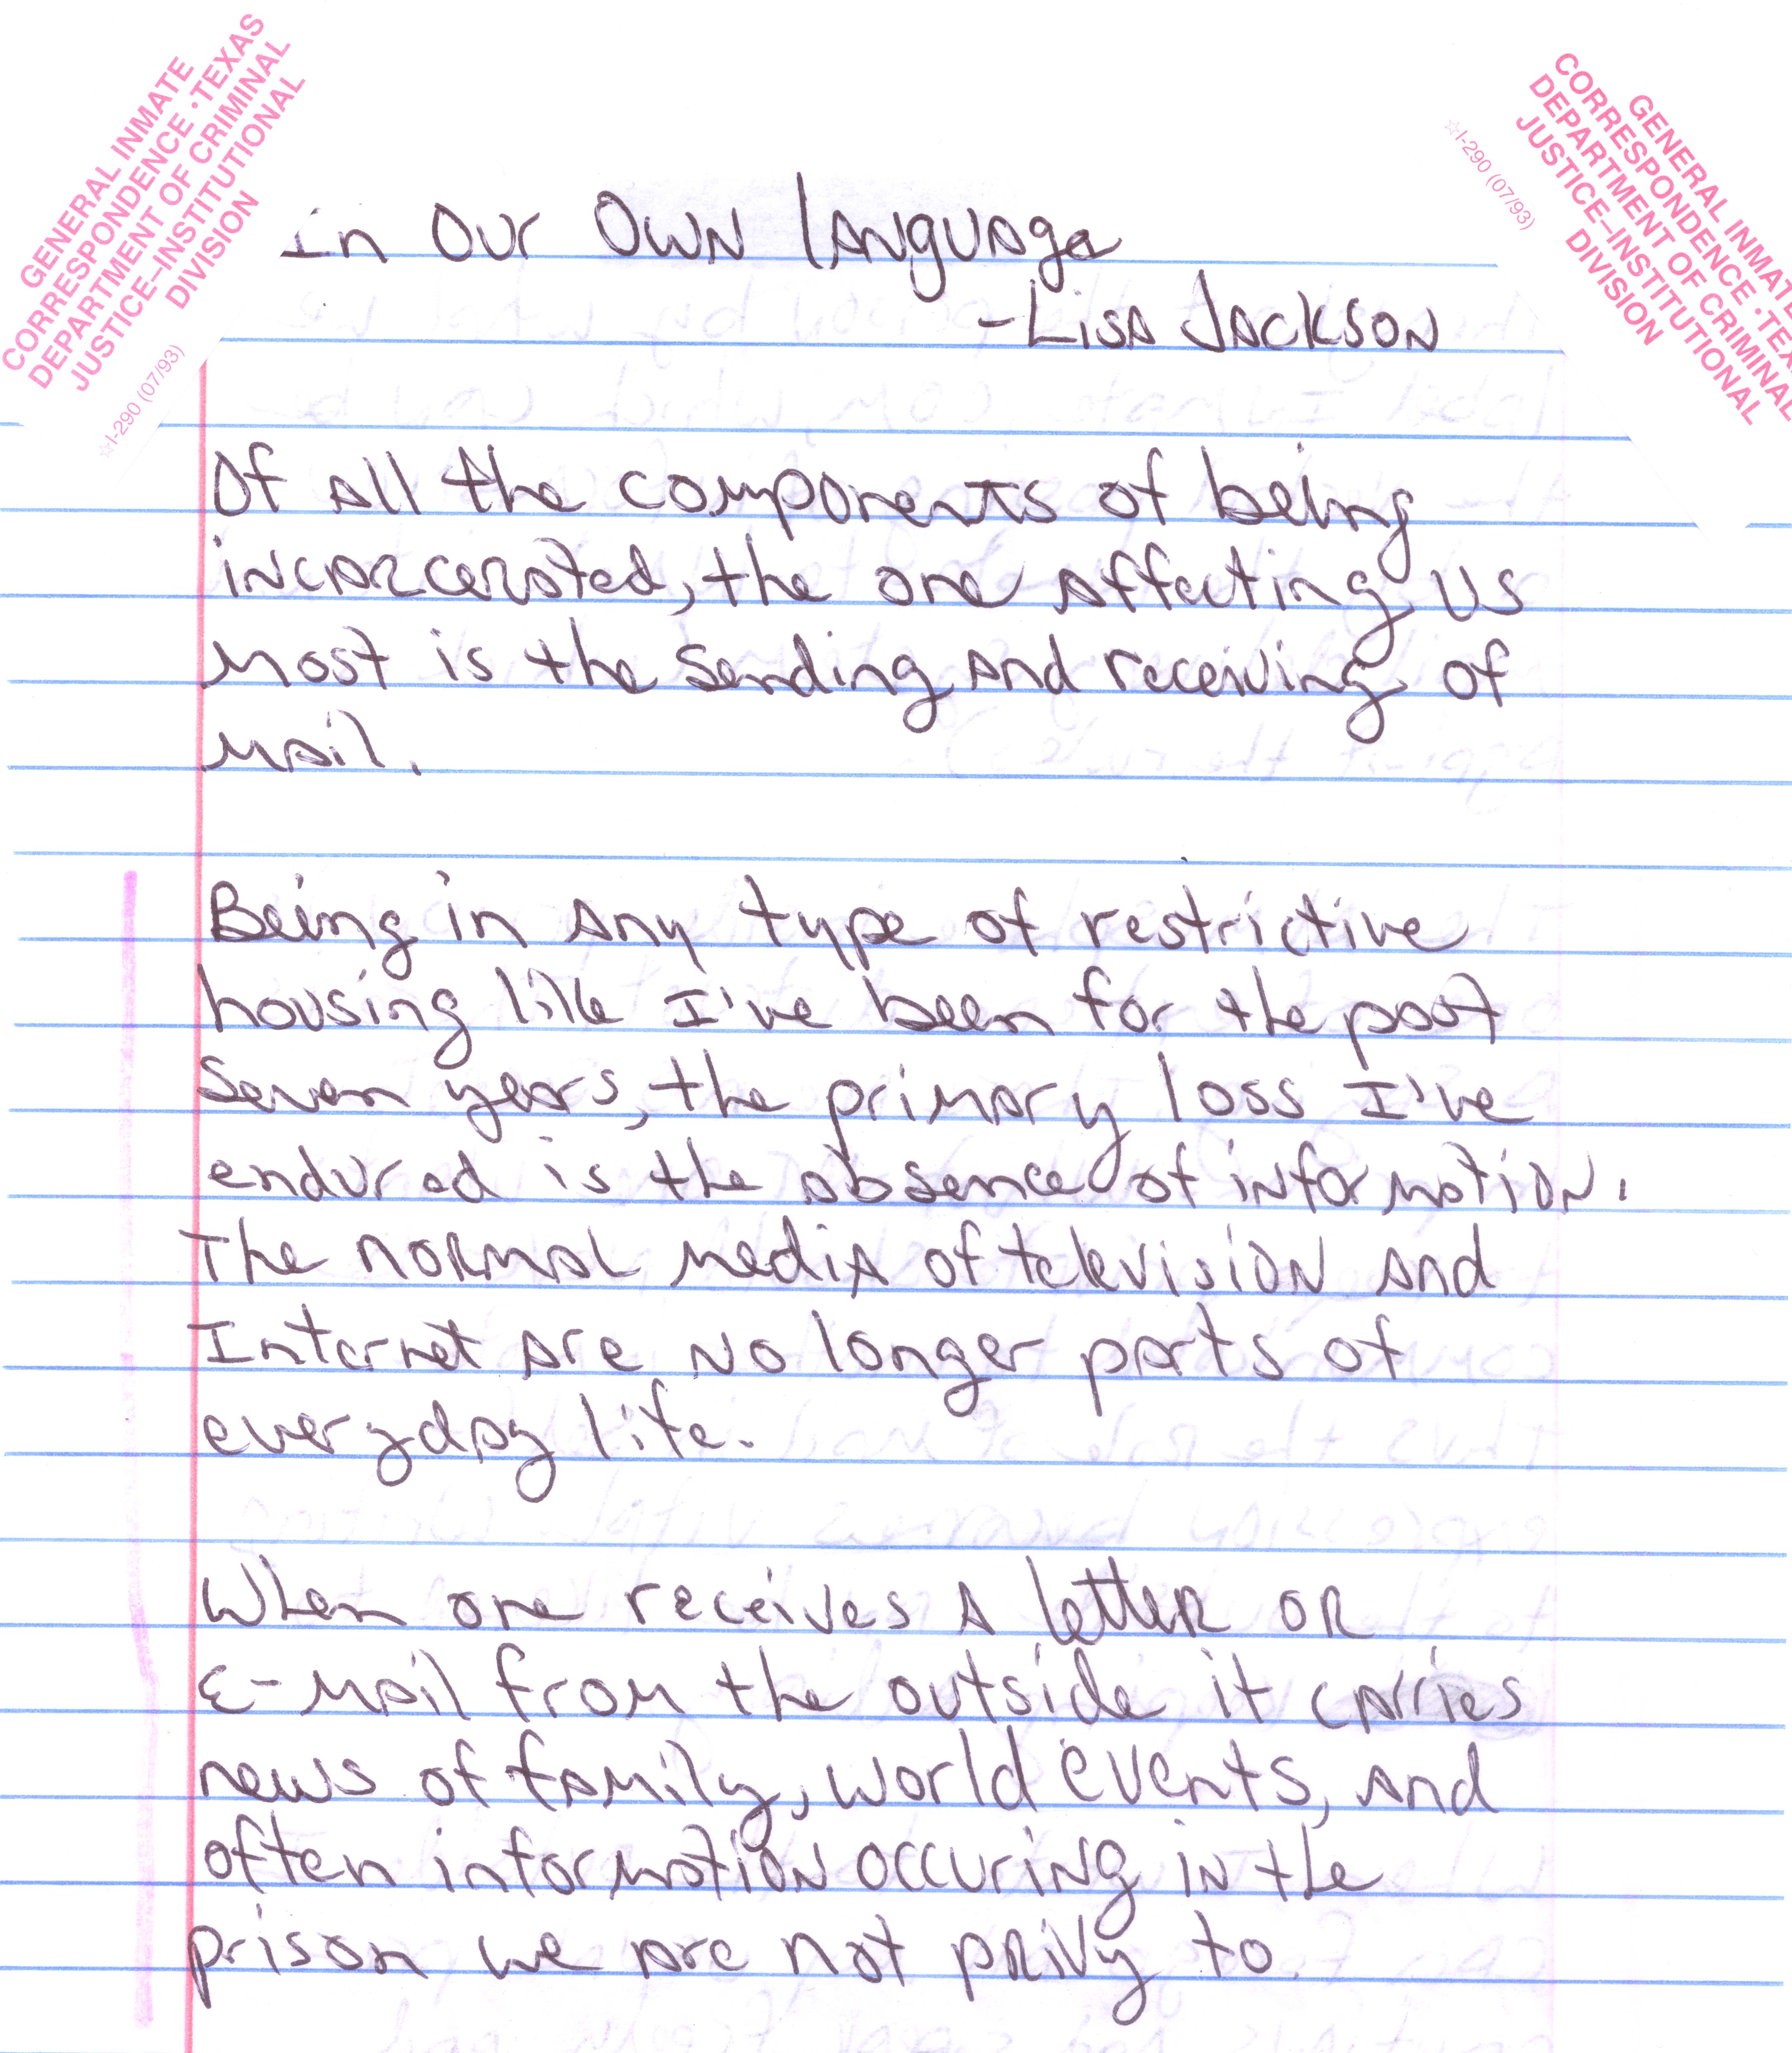 GENERAL INMATE
CORRESPONDENCE • TEXAS
DEPARTMENT OF CRIMINAL
JUSTICE–INSTITUTIONAL
DIVISION
☆I-290 (07/93)
GENERAL INMATE
CORRESPONDENCE • TEXAS
DEPARTMENT OF CRIMINAL
JUSTICE–INSTITUTIONAL
DIVISION
☆I-290 (07/93)
In Our Own Language
-Lisa Jackson
Of all the components of being
incarcerated, the one affecting us
most is the sending and receiving of
mail.
Being in any type of restrictive
housing like I've been for the past
seven years, the primary loss I've
endured is the absence of information.
The normal media of television and
Internet are no longer parts of
everyday life.
When one receives a letter or
E-mail from the outside it carries
news of family, world events, and
often information occuring in the
prison we are not privy to.